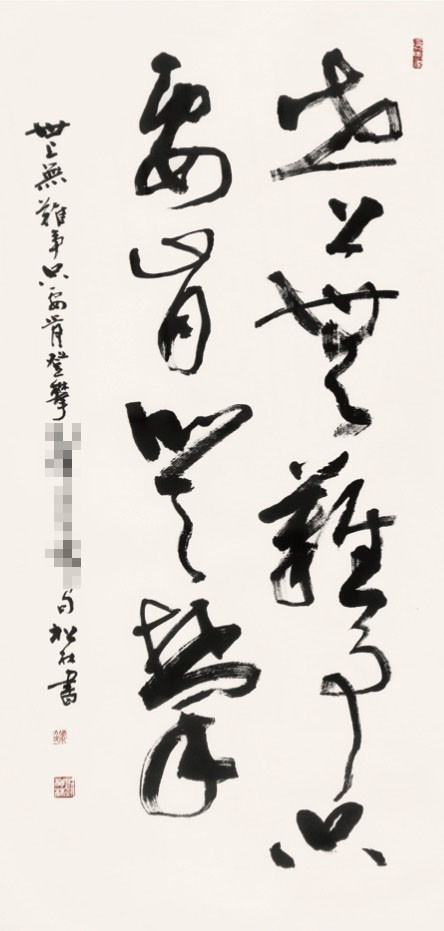 世上無難事只
要肯登攀
世上無難事只要肯登攀
句松林書